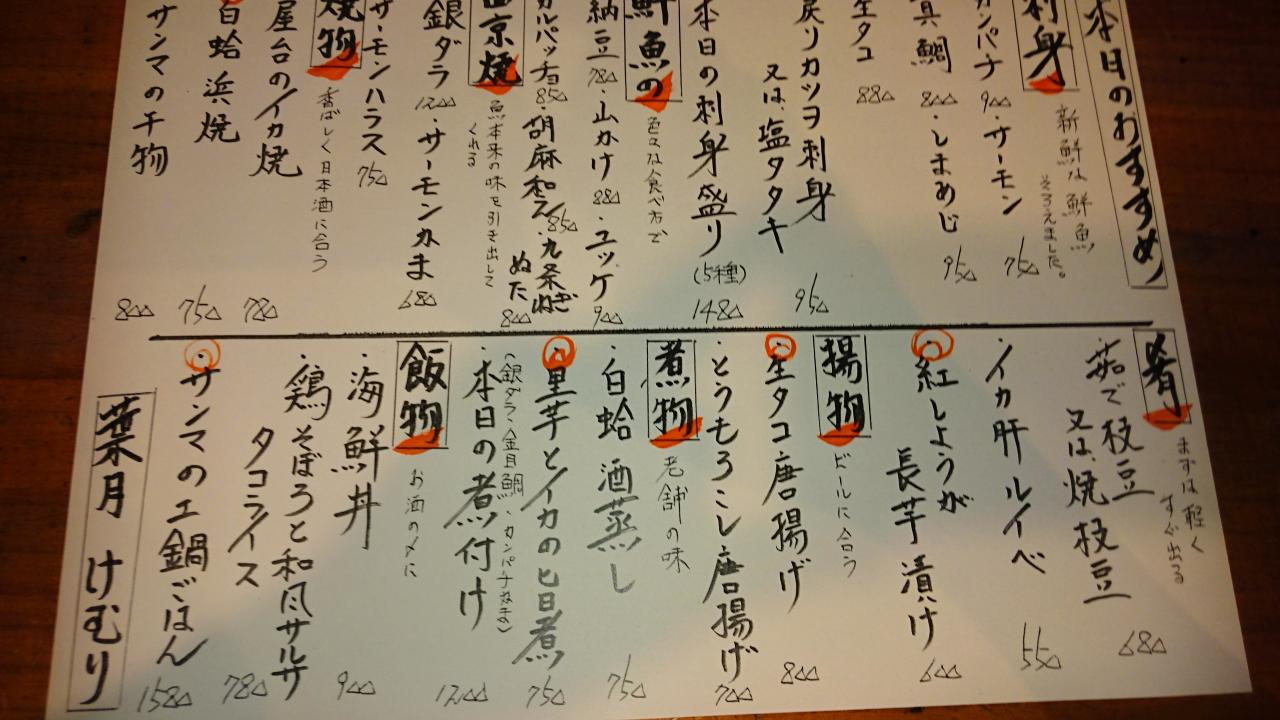 本日のおすすめ
刺身
新鮮な鮮魚
そろえました。
カンパチ 9△△ ・サーモン 75△
真鯛 8△△ ・しまあじ 95△
生タコ 88△
戻りカツヲ刺身
又は、塩タタキ 95△
本日の刺身盛り (5種) 148△
鮮魚の
色々な食べ方で
納豆 78△ ・山かけ 88△ ・ユッケ 9△△
カルパッチョ 85△ ・胡麻和え 85△ ・九条ねぎ
ぬた 8△△
西京焼
魚本来の味を引き出して
くれる
銀ダラ 12△△ ・サーモンカま 68△
サーモンハラス 75△
焼物
香ばしく日本酒に合う
屋台のイカ焼 78△
白蛤浜焼 75△
サンマの干物 8△△
肴
まずは軽く
すぐ出る
茹で枝豆
又は、焼枝豆 68△
・イカ肝ルイベ 55△
・紅しょうが
長芋漬け 6△△
揚物
ビールに合う
・生タコ唐揚げ 8△△
・とうもろこし唐揚げ 7△△
煮物
老舗の味
・白蛤酒蒸し 75△
・里芋とイカの旨煮 75△
(銀ダラ、金目鯛、カンパチカマ)
・本日の煮付け 12△△
飯物
お酒の〆に
・海鮮丼 9△△
・鶏そぼろと和風サルサ
タコライス 78△
・サンマの土鍋ごはん 158△
葉月 けむり